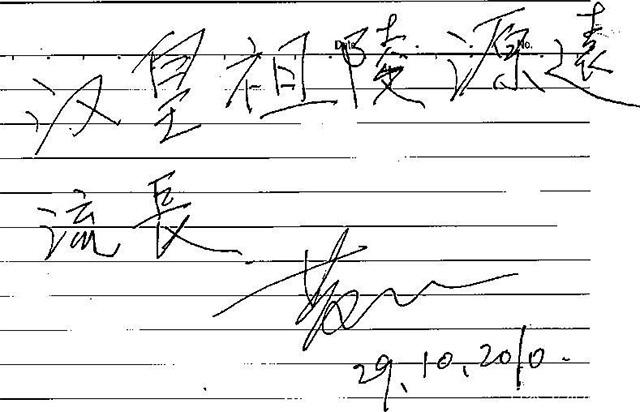 汉皇祖陵源遠
Date. No.
流長
29.10.2010.